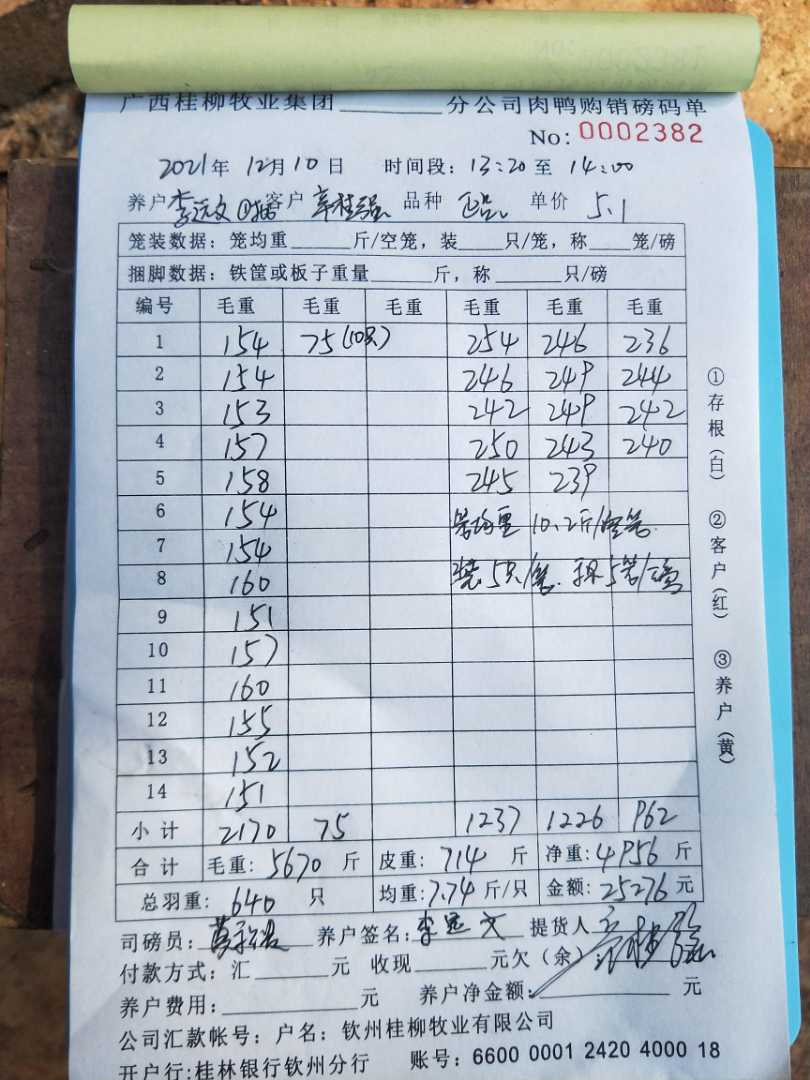 广西桂柳牧业集团______分公司肉鸭购销磅码单
No: 0002382
2021年 12月10日 时间段: 13:20至 14:00
养户 李远文 客户 章桂强 品种 正品 单价 5.1
笼装数据: 笼均重_____斤/空笼, 装____只/笼, 称____笼/磅
捆脚数据: 铁筐或板子重量_____斤, 称_____只/磅
编号 毛重 毛重 毛重 毛重 毛重 毛重
1 154 75(10只) 254 246 236
2 154 246 249 244
3 153 242 249 242
4 157 250 243 240
5 158 245 239
6 154 笼均重 10.2斤/空笼.
7 154
8 160 装5只/笼. 称5笼/磅
9 151
10 157
11 160
12 155
13 152
14 151
小计 2170 75 1237 1226 962
合计 毛重: 5670 斤 皮重: 714 斤 净重: 4956 斤
总羽重: 640 只 均重: 7.74 斤/只 金额: 25276 元
司磅员: 养户签名: 李远文 提货人
付款方式: 汇______元 收现______元欠(余)
养户费用: __________元 养户净金额: __________元
公司汇款帐号: 户名: 钦州桂柳牧业有限公司
开户行:桂林银行钦州分行 账号: 6600 0001 2420 4000 18
①存根(白) ②客户(红) ③养户(黄)